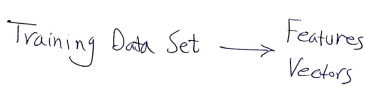 Training Data Set → Features
Vectors